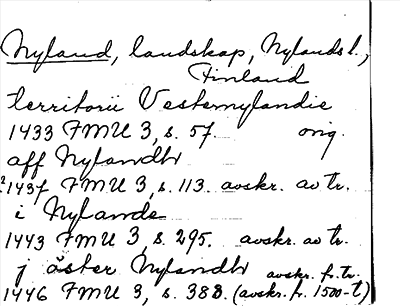 Nyland, landskap, Nylands l.,
Finland
territorii Vesternylandie
1433 FMU 3, s. 57 orig.
aff Nylandh
?1437 FMU 3, s. 113. avskr. av tr.
i Nylande
1443 FMU 3, s. 295. avskr. av tr.
j öster Nylandh avskr. fr. tr.
1446 FMU 3, s. 383. (avskr. fr. 1500-t)